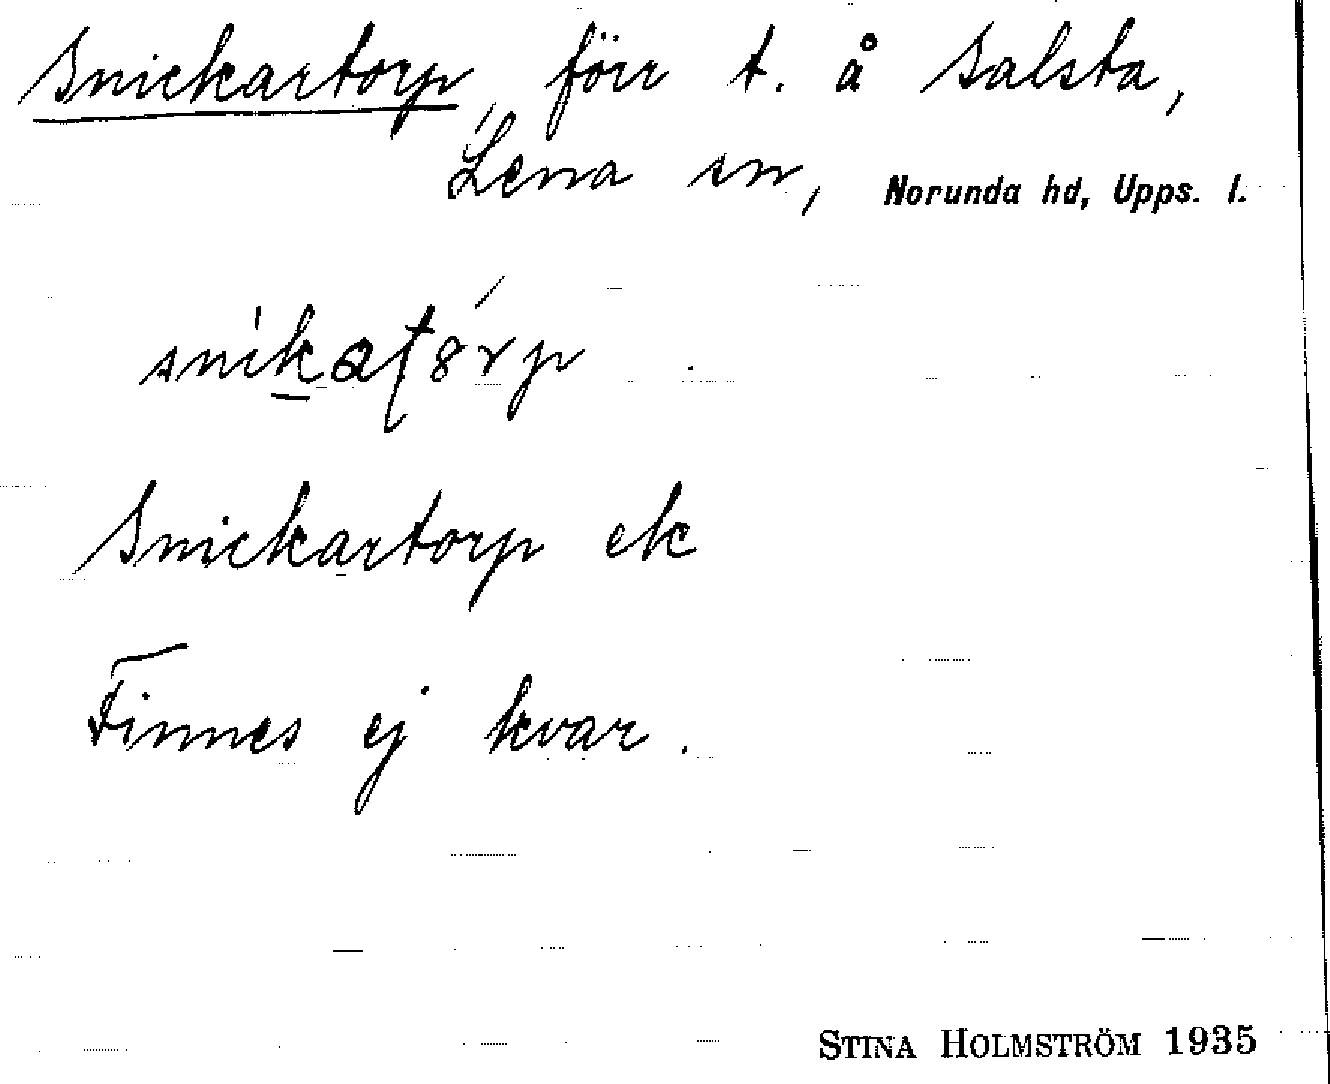 Snickartorp, förr t. å Salsta,
Lena sn, Norunda hd, Upps. l.
Snickartorp ek
Finnes ej kvar.
STINA HOLMSTRÖM 1935